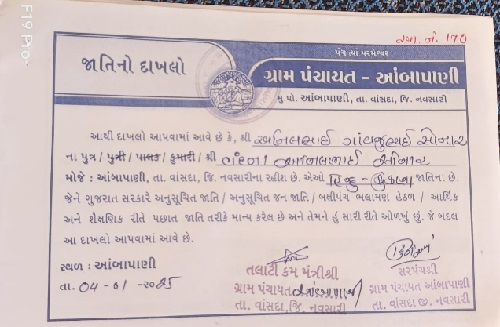 F19 Pro
રજી. નં. 170
પંચ ત્યાં પરમેશ્વર
જાતિનો દાખલો
ગ્રામ પંચાયત - આંબાપાણી
મુ.પો. આંબાપાણી, તા. વાંસદા, જિ. નવસારી
આથી દાખલો આપવામાં આવે છે કે, શ્રી અનિલભાઈ
ના પુત્ર / પુત્રી / પાલક / કુમારી / શ્રી
મોજે : આંબાપાણી, તા. વાંસદા, જિ. નવસારીના રહીશ છે. એઓ હિન્દુ - કુકણા જાતિના છે.
જેને ગુજરાત સરકારે અનુસૂચિત જાતિ / અનુસૂચિત જન જાતિ / બક્ષીપંચ ભલામણ હેઠળ / આર્થિક
અને શૈક્ષણિક રીતે પછાત જાતિ તરીકે માન્ય કરેલ છે અને તેમને હું સારી રીતે ઓળખું છું. જે બદલ
આ દાખલો આપવામાં આવે છે.
સ્થળ : આંબાપાણી
તા. 04-01-2025
તલાટી કમ મંત્રીશ્રી
ગ્રામ પંચાયત આંબાપાણી
તા. વાંસદા, જિ. નવસારી
સરપંચશ્રી
ગ્રામ પંચાયત આંબાપાણી
તા. વાંસદા જી. નવસારી